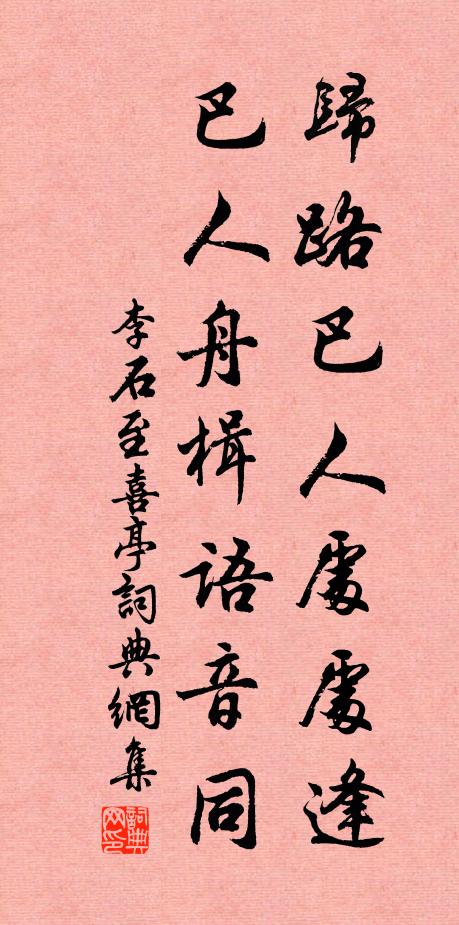 歸路巴人處處逢
巴人舟楫語音同
李石至喜亭詞典網集
詞典网印